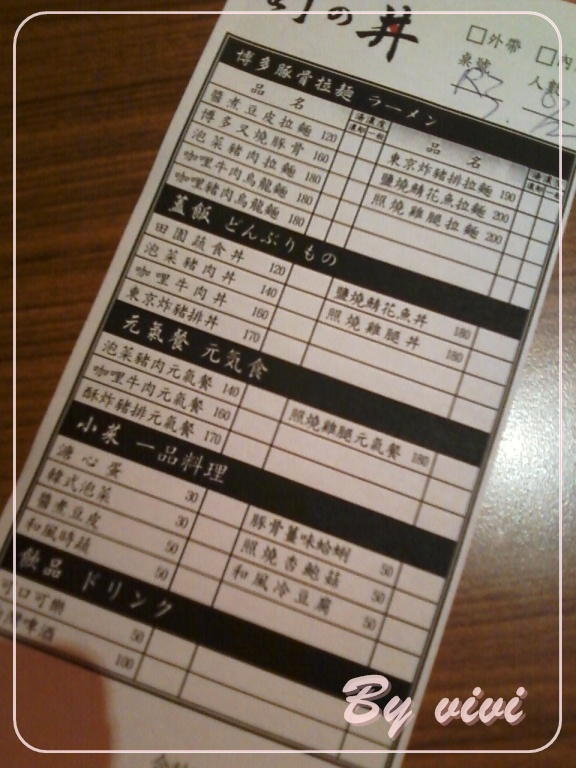 の丼
□外帶 □內
桌號
人數
博多豚骨拉麵 ラーメン
品 名
湯濃度
濃郁 一般
醬煮豆皮拉麵 120
博多叉燒豚骨 160
泡菜豬肉拉麵 180
咖哩牛肉烏龍麵 180
咖哩豬肉烏龍麵 180
品 名
湯濃度
濃郁 一般
東京炸豬排拉麵 190
鹽燒鯖花魚拉麵 200
照燒雞腿拉麵 200
蓋飯 どんぶりもの
田園蔬食丼 120
泡菜豬肉丼 140
咖哩牛肉丼 160
東京炸豬排丼 170
鹽燒鯖花魚丼 180
照燒雞腿丼 180
元氣餐 元気食
泡菜豬肉元氣餐 140
咖哩牛肉元氣餐 160
酥炸豬排元氣餐 170
照燒雞腿元氣餐 180
小菜 一品料理
溏心蛋 30
韓式泡菜 30
醬煮豆皮 50
和風時蔬 50
豚骨薑味蛤蜊 50
照燒杏鮑菇 50
和風冷豆腐 50
飲品 ドリンク
可口可樂 50
啤酒 100
By vivi